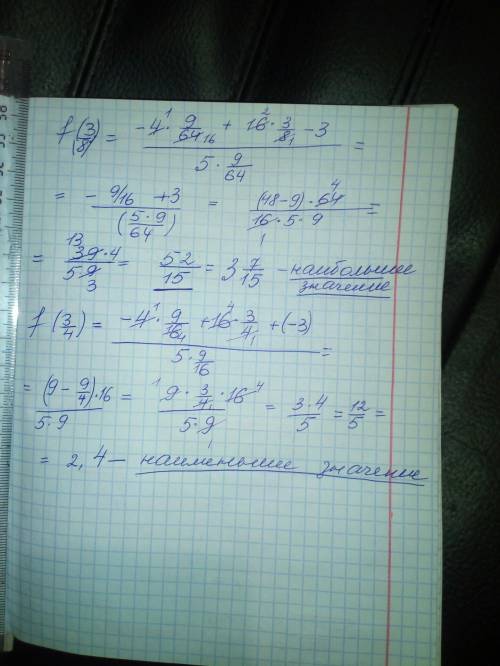 f(3/8) = (-4 · 9/64 + 16 · 3/8 - 3) / (5 · 9/64) =
= (- 9/16 + 3) / (5·9/64) = ((48-9) · 64) / (16 · 5 · 9) =
= (39·4) / (5·9) = 52/15 = 3 7/15 - наибольшее значение
f(3/4) = (-4 · 9/16 + 16 · 3/4 + (-3)) / (5 · 9/16) =
= ((9 - 9/4)·16) / (5·9) = (9 · 3/4 · 16) / (5·9) = (3·4)/5 = 12/5 =
= 2,4 — наименьшее значение